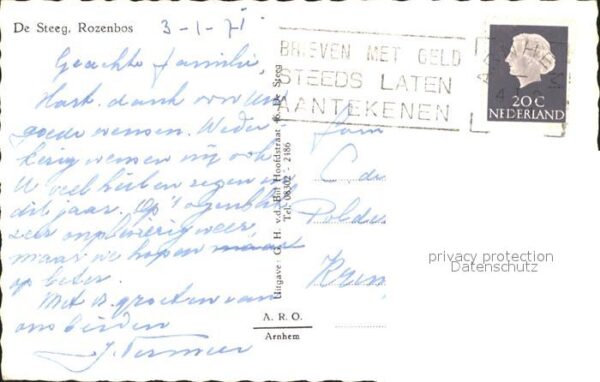 De Steeg, Rozenbos
3-1-71
Geachte familie,
Hart. dank voor Uw
goede wensen. Weder
kerig wensen wij ook
U veel heil en zegen in
dit jaar. Op 't ogenblik
zeer onplezierig weer,
maar we hopen maar
op beter.
Met vr. groeten van
ons beiden
J. Vermeer
Uitgave: G. H. v.d. Bil Hoofdstraat De Steeg
Tel. 08302 - 2486
A. R. O.
Arnhem
BRIEVEN MET GELD
STEEDS LATEN
AANTEKENEN
ARNHEM
20 C
NEDERLAND
Fam
C de
Polder
privacy protection
Datenschutz